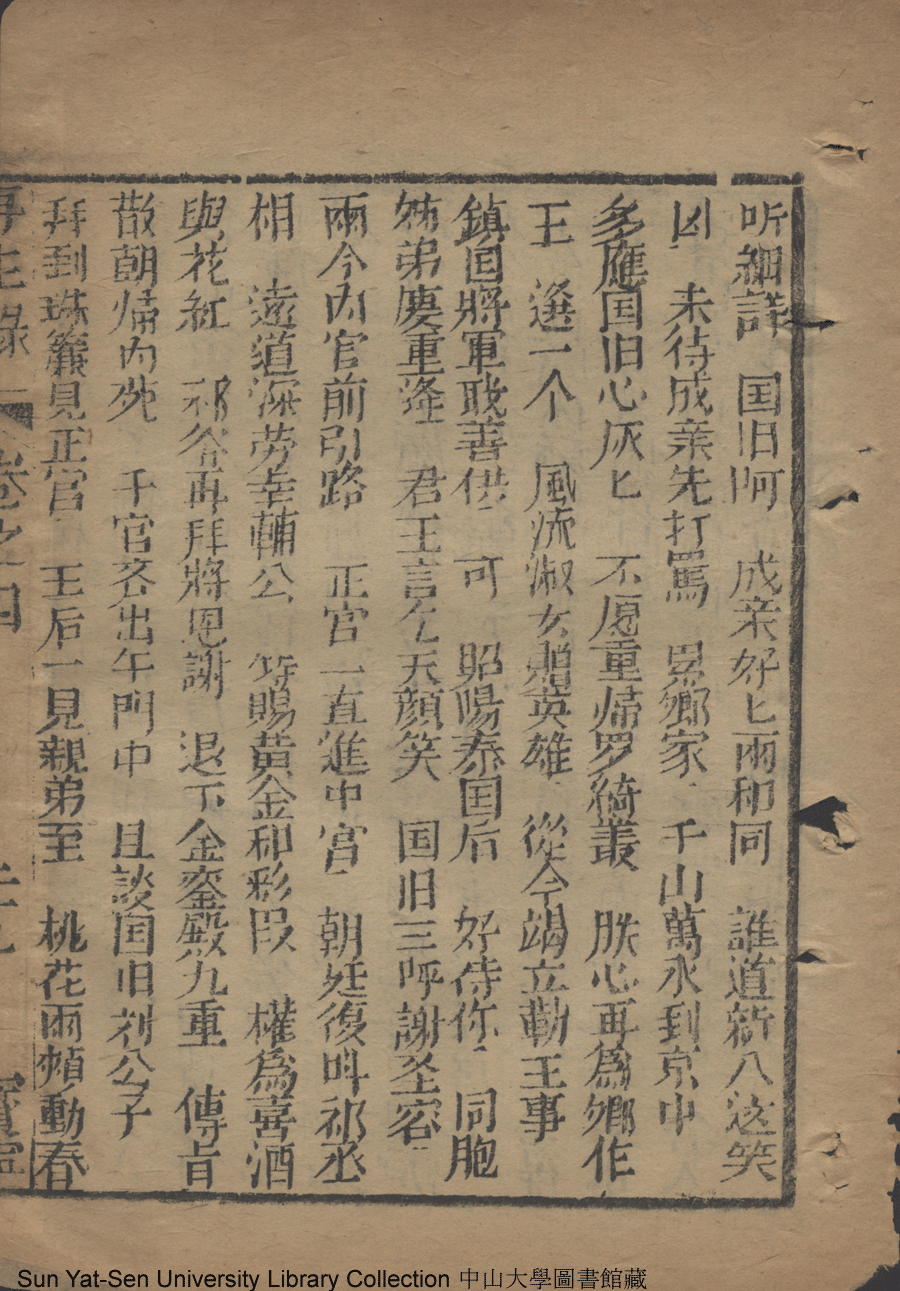 听細詳　国旧阿　成亲好匕兩和同　誰道新人这笑
凶　未待成亲先打罵　累鄉家　千山萬水到京中
多應国旧心灰匕　不愿重帰罗綺叢　朕心再為鄉作
王　選一个　風流淑女贈英雄　從今竭立勤王事
鎮国將軍職善供　可　昭陽泰国后　好待你　同胞
姊弟慶重逢　君王言乞天顔笑　国旧三呼謝圣容
兩令内官前引路　正宫一直進中宫　朝廷復呌祁丞
相　遠道深劳幸輔公　等賜黄金和彩段　權為喜酒
與花紅　祁爷再拜將恩謝　退下金鑾殿九重　傳旨
散朝帰内苑　千官各出午門中　且談国旧刘公子
拜到珠簾見正宫　王后一見親弟至　桃花兩頰動春
再生緣　卷之四
Sun Yat-Sen University Library Collection 中山大學圖書館藏